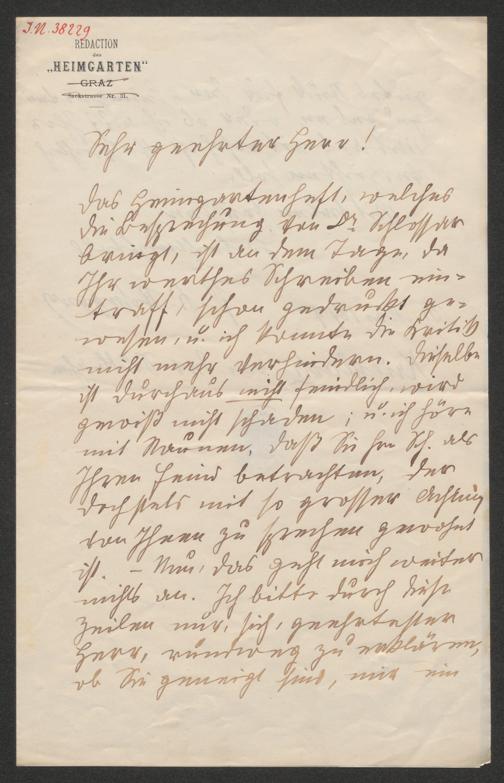 J.N. 38229
REDACTION
des
„HEIMGARTEN“
GRAZ
Sackstrasse Nr. 31.
Sehr geehrter Herr!
Das Heimgartenheft, welches
die Besprechung von Dr. Schlossar
bringt, ist an dem Tage, da
Ihr werthes Schreiben ein-
traff, schon gedruckt ge-
wesen, u. ich konnte die Kritik
nicht mehr verhindern. Dieselbe
ist durchaus nicht feindlich, wird
gewiß nicht schaden; u. ich höre
mit Staunen, daß Sie Hrn Sch. als
Ihren Feind betrachten, der
doch stets mit so grosser Achtung
von Ihnen zu sprechen gewohnt
ist. – Nun, das geht mich weiter
nichts an. Ich bitte durch diese
Zeilen nur, sich, geehrtester
Herr, rundweg zu erklären,
ob Sie geneigt sind, mir ein